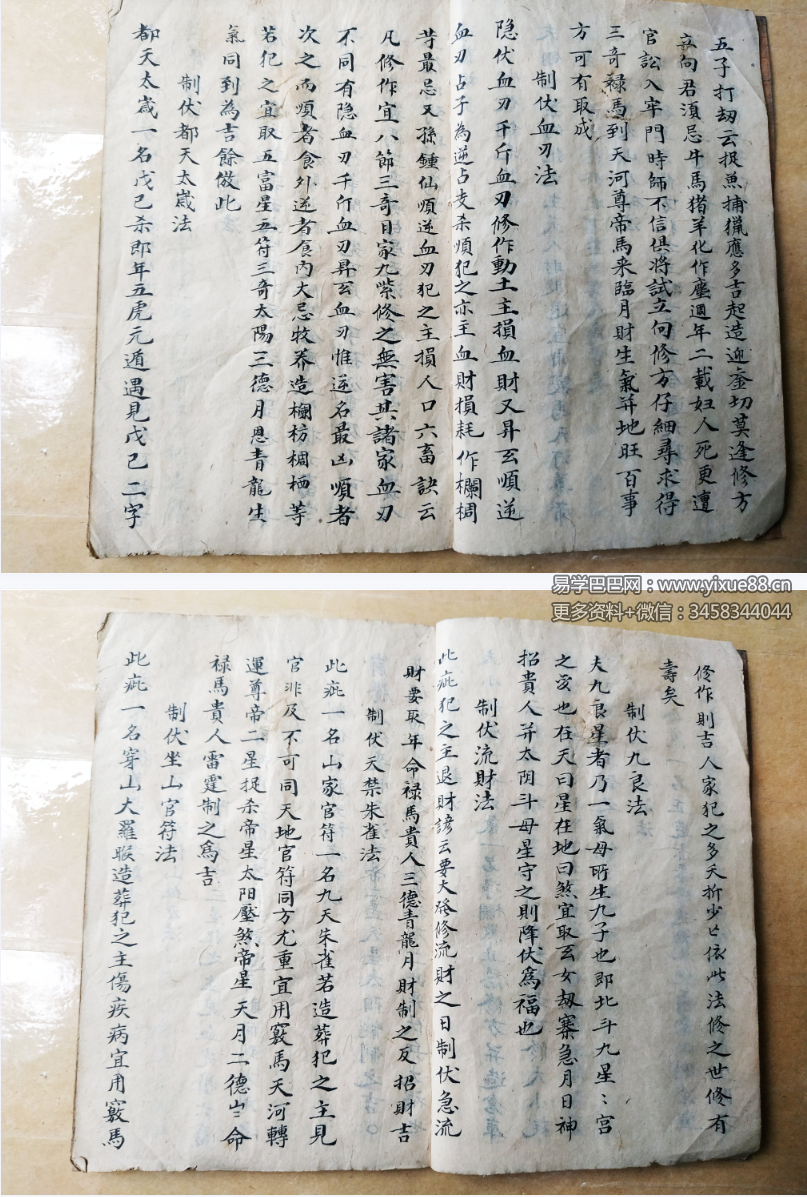 五子打刼云捉魚捕獵應多吉起造迎奎切莫逢修方
向君須忌牛馬猪羊化作塵週年二載妇人死更遭
官訟入牢門時師不信俱將試立向修方仔細尋求得
三奇禄馬到天河尊帝馬来臨月財生氣并地旺百事
方可有取成
制伏血刃法
隐伏血刃千斤血刃修作動土主損血財又昇玄順逆
血刃占子為逆占支杀順犯之亦主血財損耗作欄椆
苛最忌又孫鍾仙順逆血刃犯之主損人口六畜訣云
凡修作宜八節三奇日家九紫修之無害其諸家血刃
不同有隐血刃千斤血刃昇玄血刃惟逆名最凶順者
次之而順者食外逆者食内大忌牧养造欄枋椆栖等
若犯之宜取五富星五符三奇太陽三德月恩青龍生
氣同到為吉餘倣此
制伏都天太崴法
都天太崴一名戊己杀郎年五虎元遁遇見戊己二字
易学巴巴网：www.yixue88.cn
更多资料+微信：3458344044
修作則吉人家犯之多夭折少亡依此法修之世修有
壽矣
制伏九良法
夫九良星者乃一氣母所生九子也即北斗九星〻宫
之名也在天曰星在地曰煞宜取玄女刼寨急月日神
招貴人并太阴斗母星守之則降伏為福也
制伏流財法
此疵犯之主退財諺云要大發修流財之日制伏急流
財要取年命禄馬貴人三德青龍月財制之反招財吉
制伏天禁朱雀法
此疵一名山家官符一名九天朱雀若造葬犯之主見
官非及不可同天地官符同方尤重宜用竅馬天河轉
運尊帝二星捉杀帝星太阳壓煞帝星天月二德山命
禄馬貴人雷霆制之為吉
制伏坐山官符法
此疵一名穿山大羅睺造葬犯之主傷疾病宜用竅馬